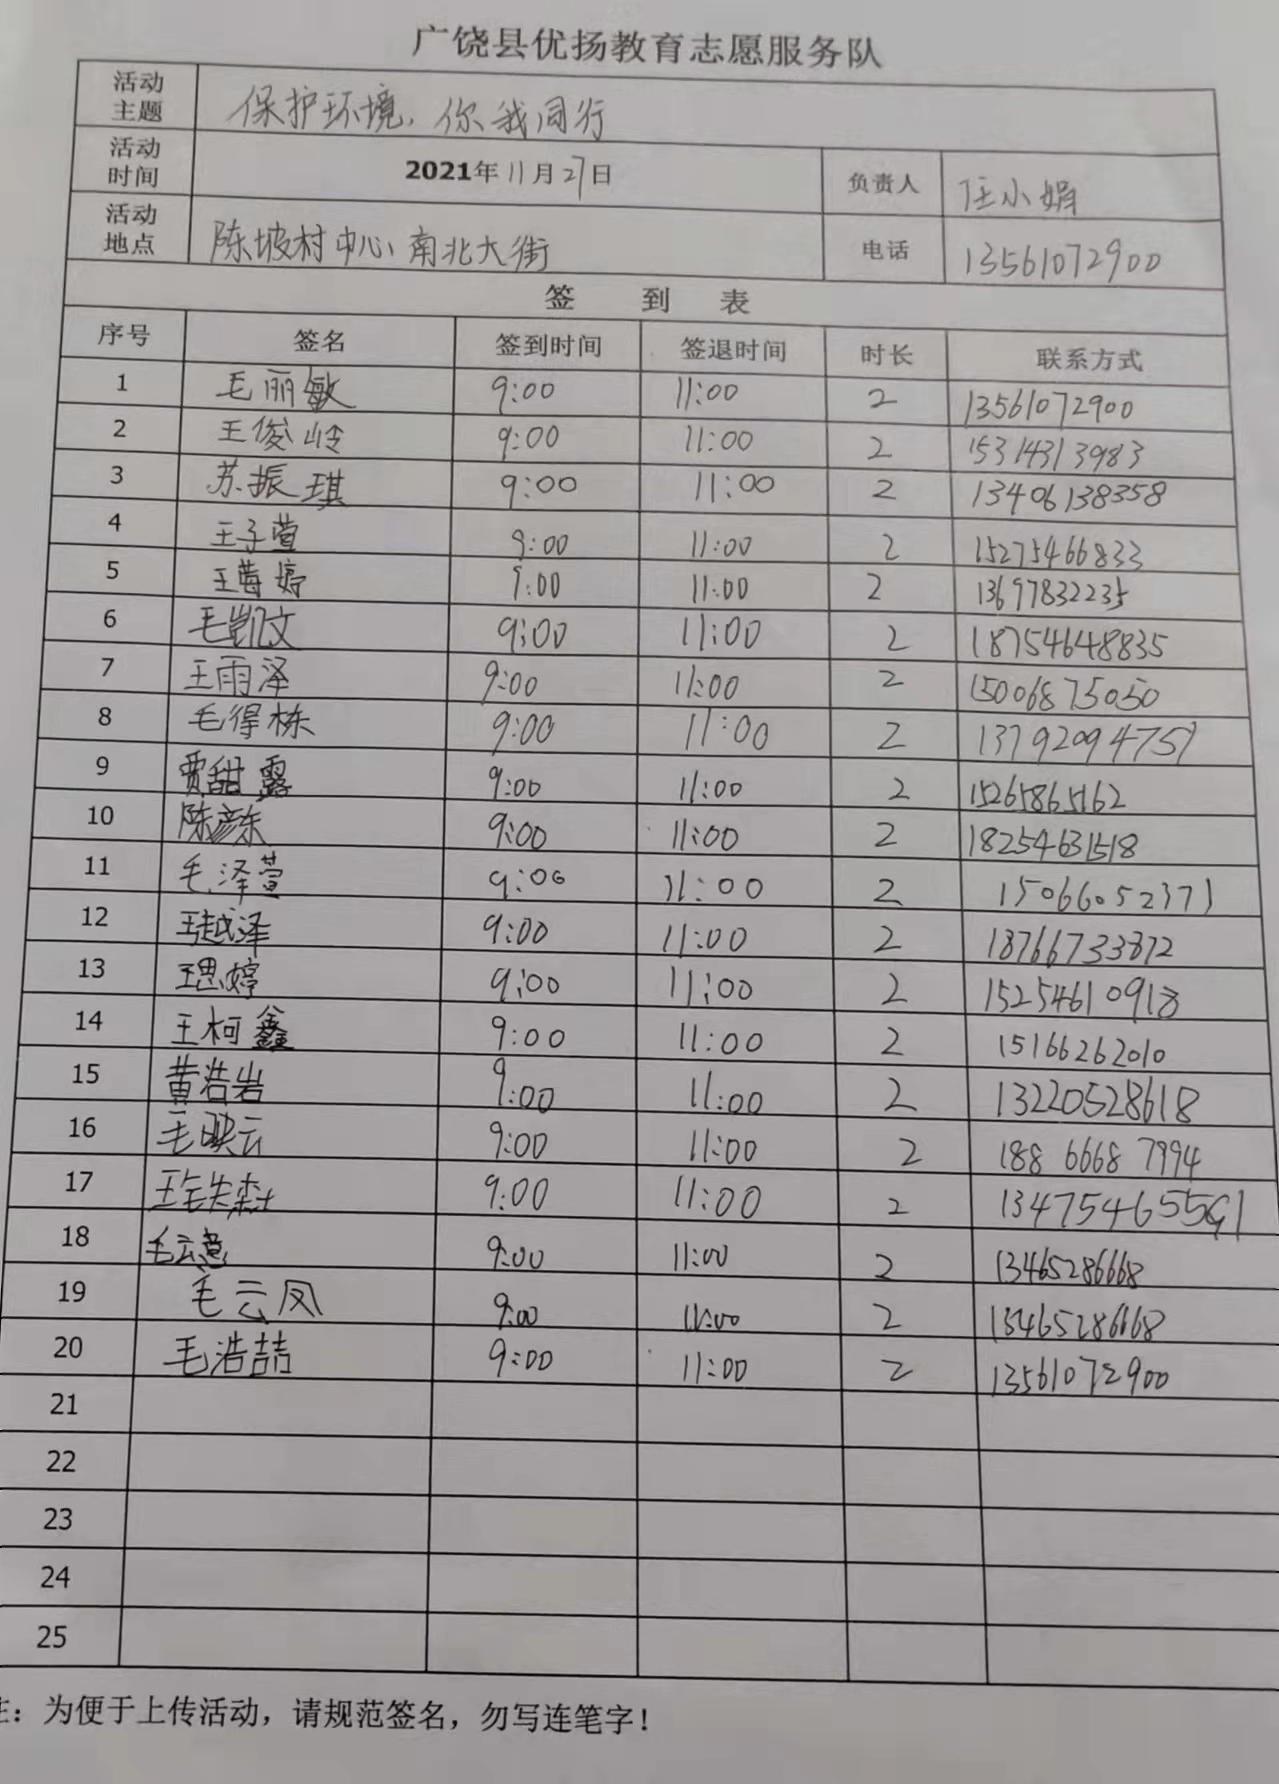 广饶县优扬教育志愿服务队
活动主题 保护环境，你我同行
活动时间 2021年11月27日 负责人 任小娟
活动地点 陈坡村中心南北大街 电话 13561072900
签 到 表
序号 签名 签到时间 签退时间 时长 联系方式
1 毛丽敏 9:00 11:00 2 13561072900
2 王俊岭 9:00 11:00 2 15314313983
3 苏振琪 9:00 11:00 2 13406138358
4 王子萱 9:00 11:00 2 15275466833
5 王苒婷 9:00 11:00 2 13697832235
6 毛凯文 9:00 11:00 2 18754648835
7 王雨泽 9:00 11:00 2 15006875050
8 毛得栋 9:00 11:00 2 13792094751
9 贾甜露 9:00 11:00 2 15265865162
10 陈彦东 9:00 11:00 2 18254631518
11 毛泽萱 9:00 11:00 2 15066052371
12 王越泽 9:00 11:00 2 18766733872
13 王思婷 9:00 11:00 2 15254610918
14 王柯鑫 9:00 11:00 2 15166262010
15 黄浩岩 9:00 11:00 2 13220528618
16 毛映云 9:00 11:00 2 188 6668 7994
17 9:00 11:00 2
18 毛云意 9:00 11:00 2 13465286668
19 毛云凤 9:00 11:00 2 13465286668
20 毛浩喆 9:00 11:00 2 13561072900
21
22
23
24
25
注：为便于上传活动，请规范签名，勿写连笔字！